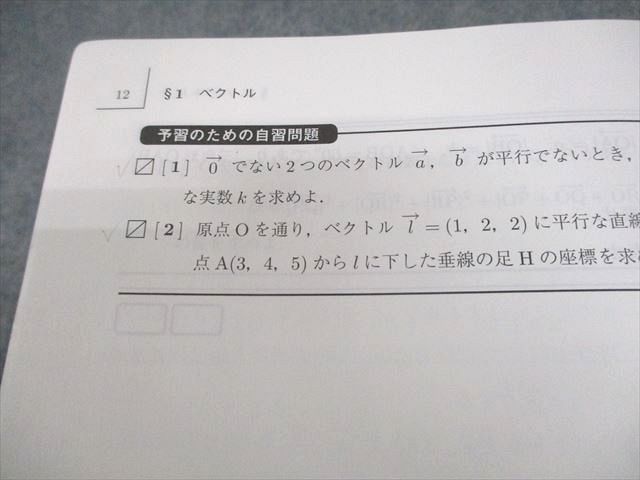 12 §1 ベクトル
予習のための自習問題
[1] $\vec{0}$ でない2つのベクトル $\vec{a}$, $\vec{b}$ が平行でないとき,
な実数 k を求めよ.
[2] 原点Oを通り, ベクトル $\vec{l}$ = (1, 2, 2) に平行な直線
点A(3, 4, 5) から l に下した垂線の足Hの座標を求